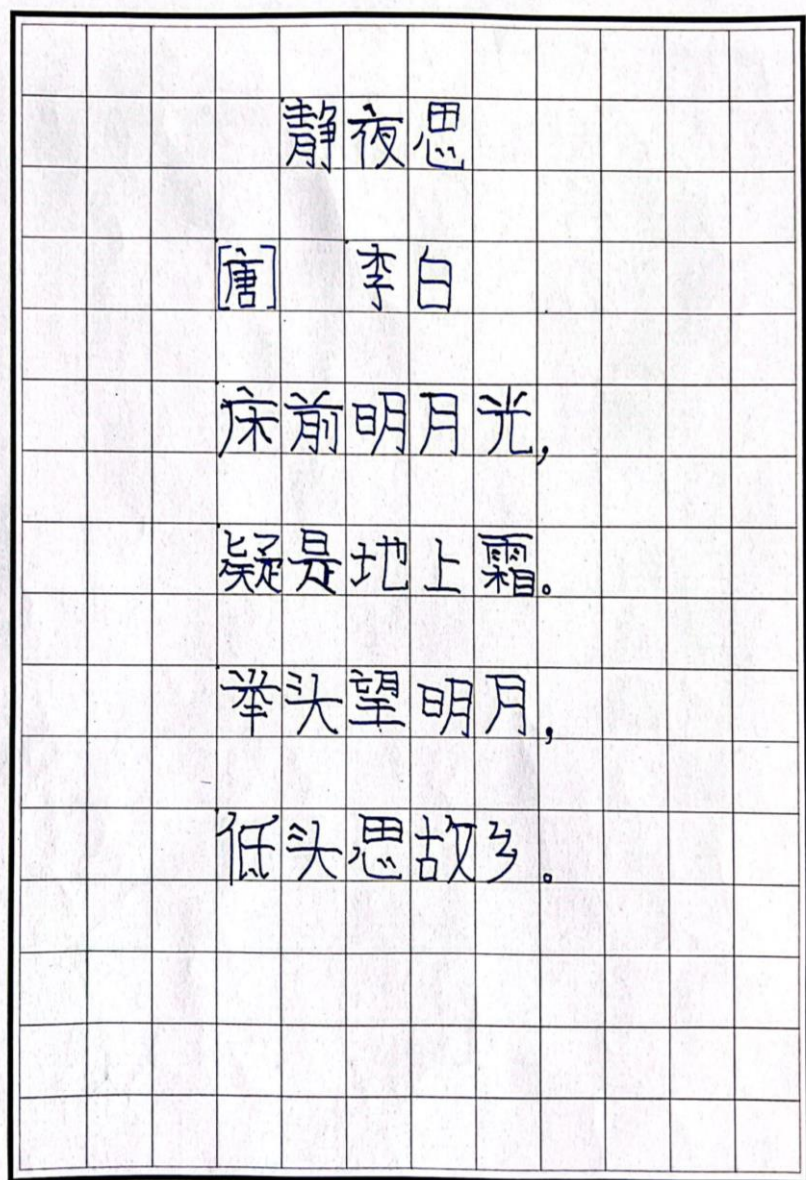 静夜思
[唐] 李白
床前明月光,
疑是地上霜。
举头望明月,
低头思故乡。